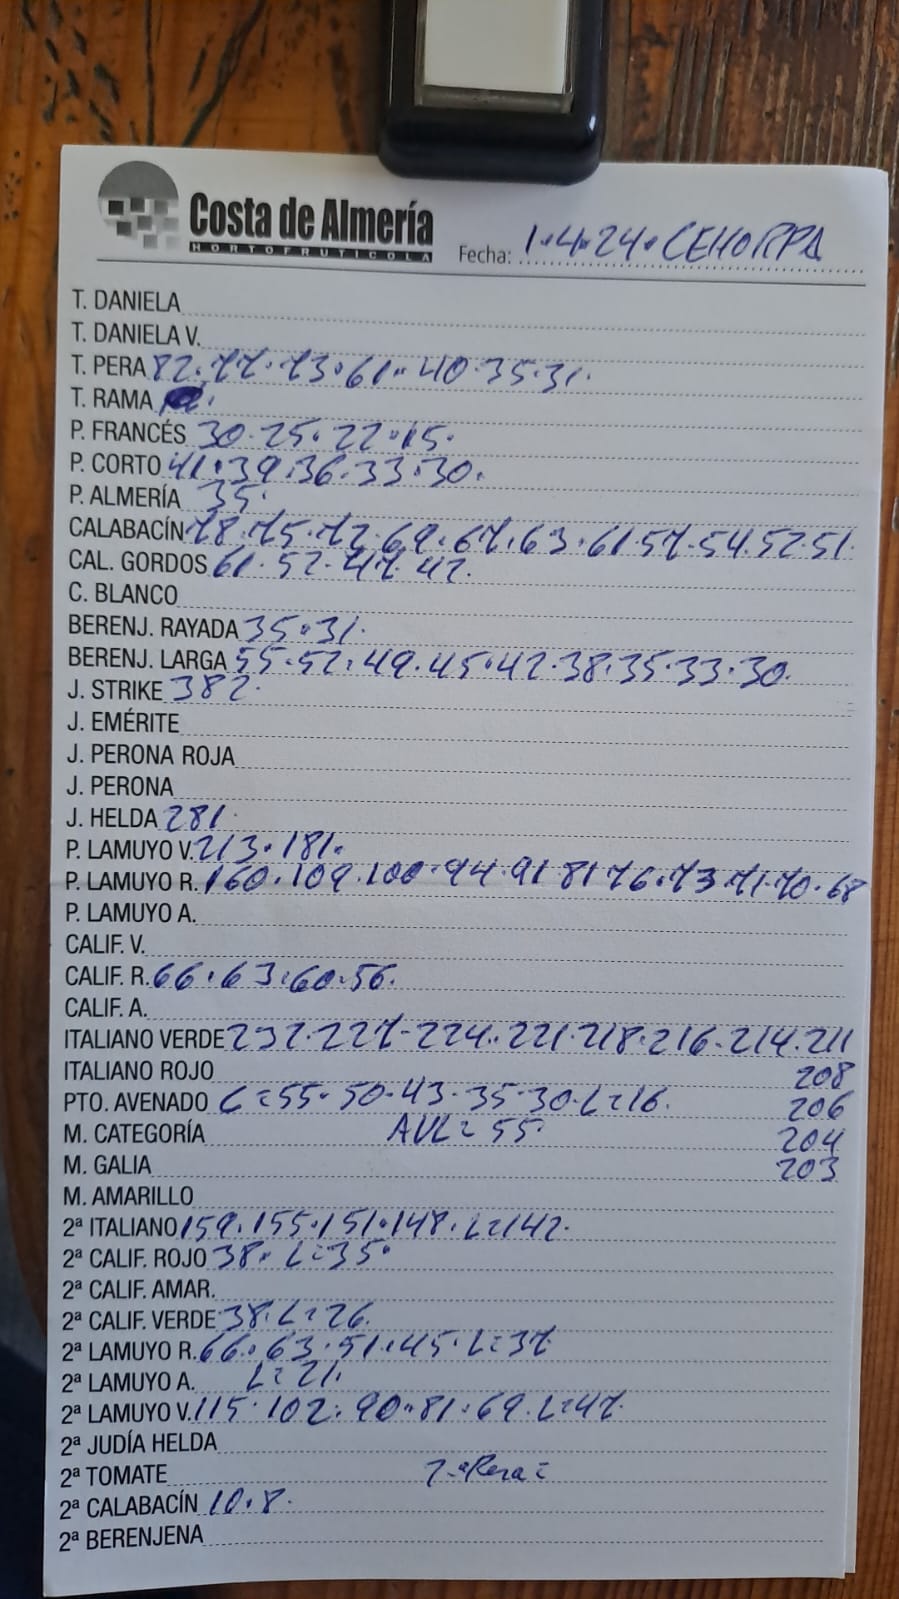 Costa de Almería
HORTOFRUTICOLA
Fecha: 1.4.24. CEHORPA
T. DANIELA
T. DANIELA V.
T. PERA 82.77.73.61.40.35.31.
T. RAMA
P. FRANCÉS 30.25.22.15.
P. CORTO 41.39.36.33.30.
P. ALMERÍA 35.
CALABACÍN 78.75.72.69.67.63.61.57.54.52.51.
CAL. GORDOS 61.52.47.42.
C. BLANCO
BERENJ. RAYADA 35.31.
BERENJ. LARGA 55.52.49.45.42.38.35.33.30.
J. STRIKE 382.
J. EMÉRITE
J. PERONA ROJA
J. PERONA
J. HELDA 281.
P. LAMUYO V. 213.181.
P. LAMUYO R. 160.109.100.94.91.81.76.73.71.70.68
P. LAMUYO A.
CALIF. V.
CALIF. R. 66.63.60.56.
CALIF. A.
ITALIANO VERDE 232.227.224.221.218.216.214.211
ITALIANO ROJO 208
PTO. AVENADO C=55.50.43.35.30.L=16. 206
M. CATEGORÍA AVL=55. 204
M. GALIA 203
M. AMARILLO
2ª ITALIANO 159.155.151.148.L=142.
2ª CALIF. ROJO 38.L=35.
2ª CALIF. AMAR.
2ª CALIF. VERDE 38.L=26.
2ª LAMUYO R. 66.63.51.45.L=37
2ª LAMUYO A. L=21.
2ª LAMUYO V. 115.102.90.81.69.L=47.
2ª JUDÍA HELDA
2ª TOMATE
2ª CALABACÍN 10.8.
2ª BERENJENA